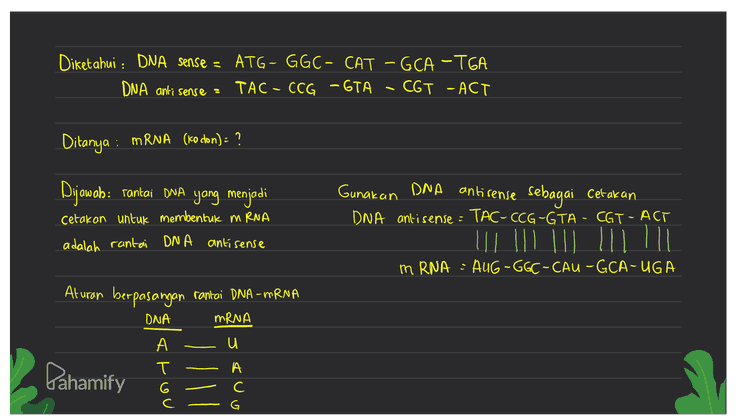 Diketahui : DNA sense = ATG - GGC - CAT - GCA - TGA
DNA antisense = TAC - CCG - GTA - CGT - ACT
Ditanya : mRNA (kodon) = ?
Dijawab : rantai DNA yang menjadi
cetakan untuk membentuk mRNA
adalah rantai DNA antisense
Aturan berpasangan rantai DNA - mRNA
DNA mRNA
A — U
T — A
G — C
C — G
Gunakan DNA antisense sebagai cetakan
DNA antisense = TAC - CCG - GTA - CGT - ACT
mRNA = AUG - GGC - CAU - GCA - UGA
Pahamify